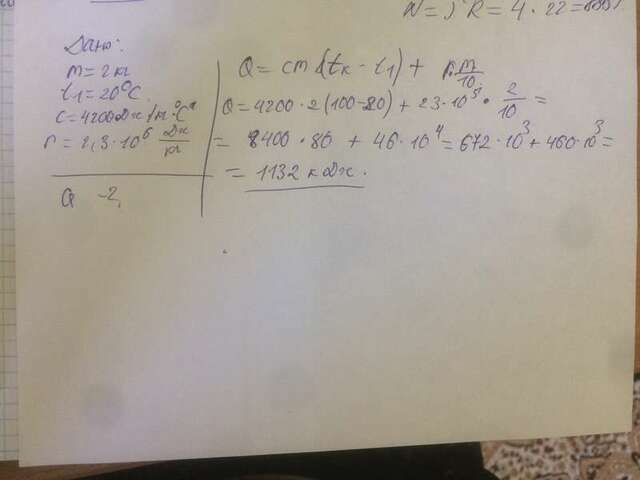 N = J²R = 4 · 22 =
Дано:
m = 2 кг
t1 = 20°C
c = 4200 Дж/кг·°C
r = 2,3·10⁶ Дж/кг
Q - ?
Q = cm(tк - t1) + r·m/10
Q = 4200 · 2(100-20) + 23·10⁵ · 2/10 =
= 8400 · 80 + 46·10⁴ = 672·10³ + 460·10³ =
= 1132 кДж.